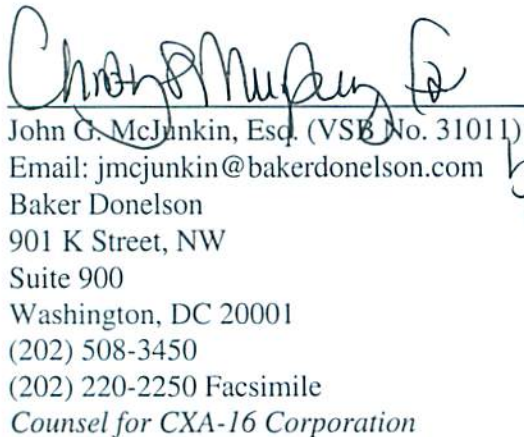 John G. McJunkin, Esq. (VSB No. 31011)
Email: jmcjunkin@bakerdonelson.com
Baker Donelson
901 K Street, NW
Suite 900
Washington, DC 20001
(202) 508-3450
(202) 220-2250 Facsimile
Counsel for CXA-16 Corporation